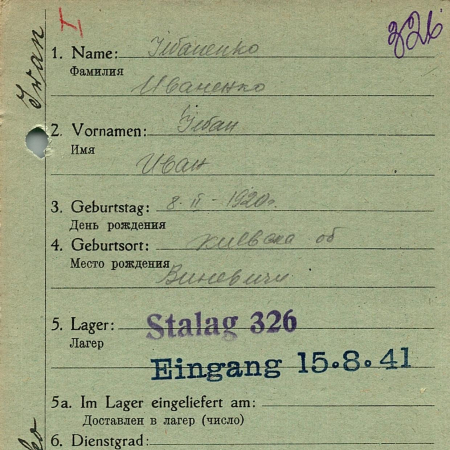 I 326
1. Name: Iваненко
Фамилия
Иваненко
2. Vornamen: Iван
Имя
Иван
3. Geburtstag: 8-II-1920г.
День рождения
4. Geburtsort: киевска об
Место рождения Виневичи
5. Lager: Stalag 326
Лагер
Eingang 15.8.41
5a. Im Lager eingeliefert am:
Доставлен в лагер (число)
6. Dienstgrad:
Iwan
ko